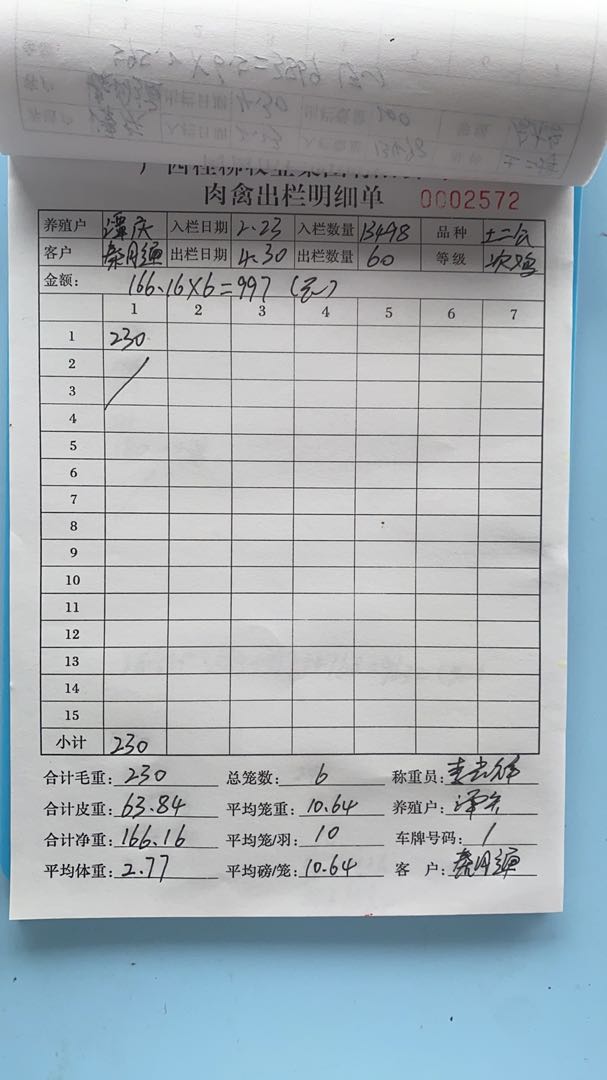 肉禽出栏明细单 0002572
养殖户 谭庆 入栏日期 2.23 入栏数量 13498 品种 土二
客户 秦月通 出栏日期 4.30 出栏数量 60 等级 次鸡
金额: 166.16×6=997(元)
1 2 3 4 5 6 7
1 230
2
3
4
5
6
7
8
9
10
11
12
13
14
15
小计 230
合计毛重: 230 总笼数: 6 称重员:
合计皮重: 63.84 平均笼重: 10.64 养殖户: 谭庆
合计净重: 166.16 平均笼/羽: 10 车牌号码: /
平均体重: 2.77 平均磅/笼: 10.64 客 户: 秦月通